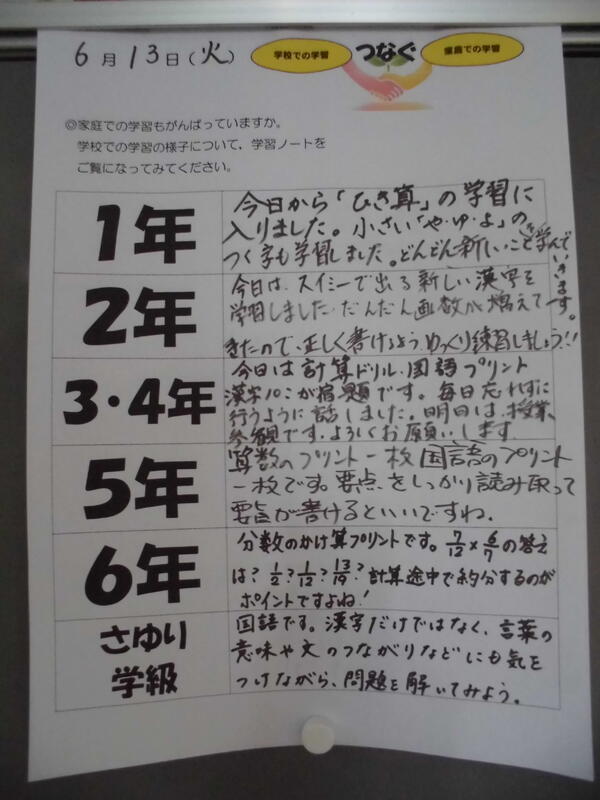 6月13日(火)
学校での学習 つなぐ 家庭での学習
◎家庭での学習もがんばっていますか。
学校での学習の様子について、学習ノートを
ご覧になってみてください。
1年
今日から「ひき算」の学習に
入りました。小さい「や・ゆ・よ」の
つく字も学習しました。どんどん新しいことを学んで
いきます。
2年
今日は、スイミーで出る新しい漢字を
学習しました。だんだん画数が増えて
きたので、正しく書けるようゆっくり練習しましょう!!
3・4年
今日は計算ドリル・国語プリント
漢字10こが宿題です。毎日忘れずに
行うように話しました。明日は、授業
参観です。よろしくお願いします
5年
算数のプリント一枚国語のプリント
一枚です。要点をしっかり読み取って
要旨が書けるといいですね。
6年
分数のかけ算プリントです。7/12×6/7の答え
は?1/2?1/12?13/19?計算途中で約分するのが
ポイントですよね!
さゆり
学級
国語です。漢字だけではなく、言葉の
意味や文のつながりなどにも気を
つけながら、問題を解いてみよう。